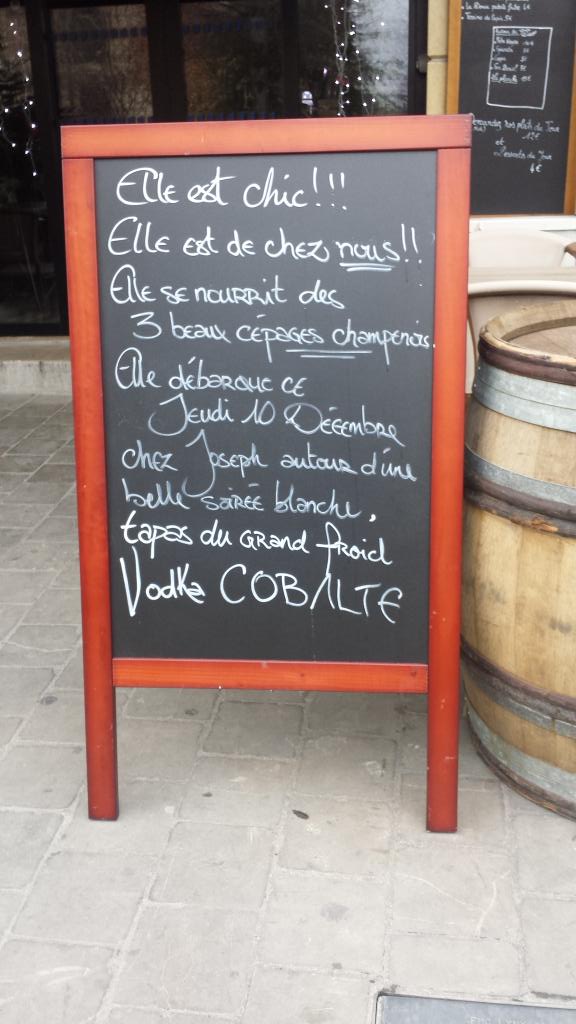 Elle est chic!!!
Elle est de chez nous!!
Elle se nourrit des
3 beaux cépages champenois.
Elle débarque ce
Jeudi 10 Décembre
chez Joseph autour d'une
belle soirée blanche,
tapas du grand froid
Vodka COBALTE
plats du Jour
12€
et
Desserts du Jour
4€